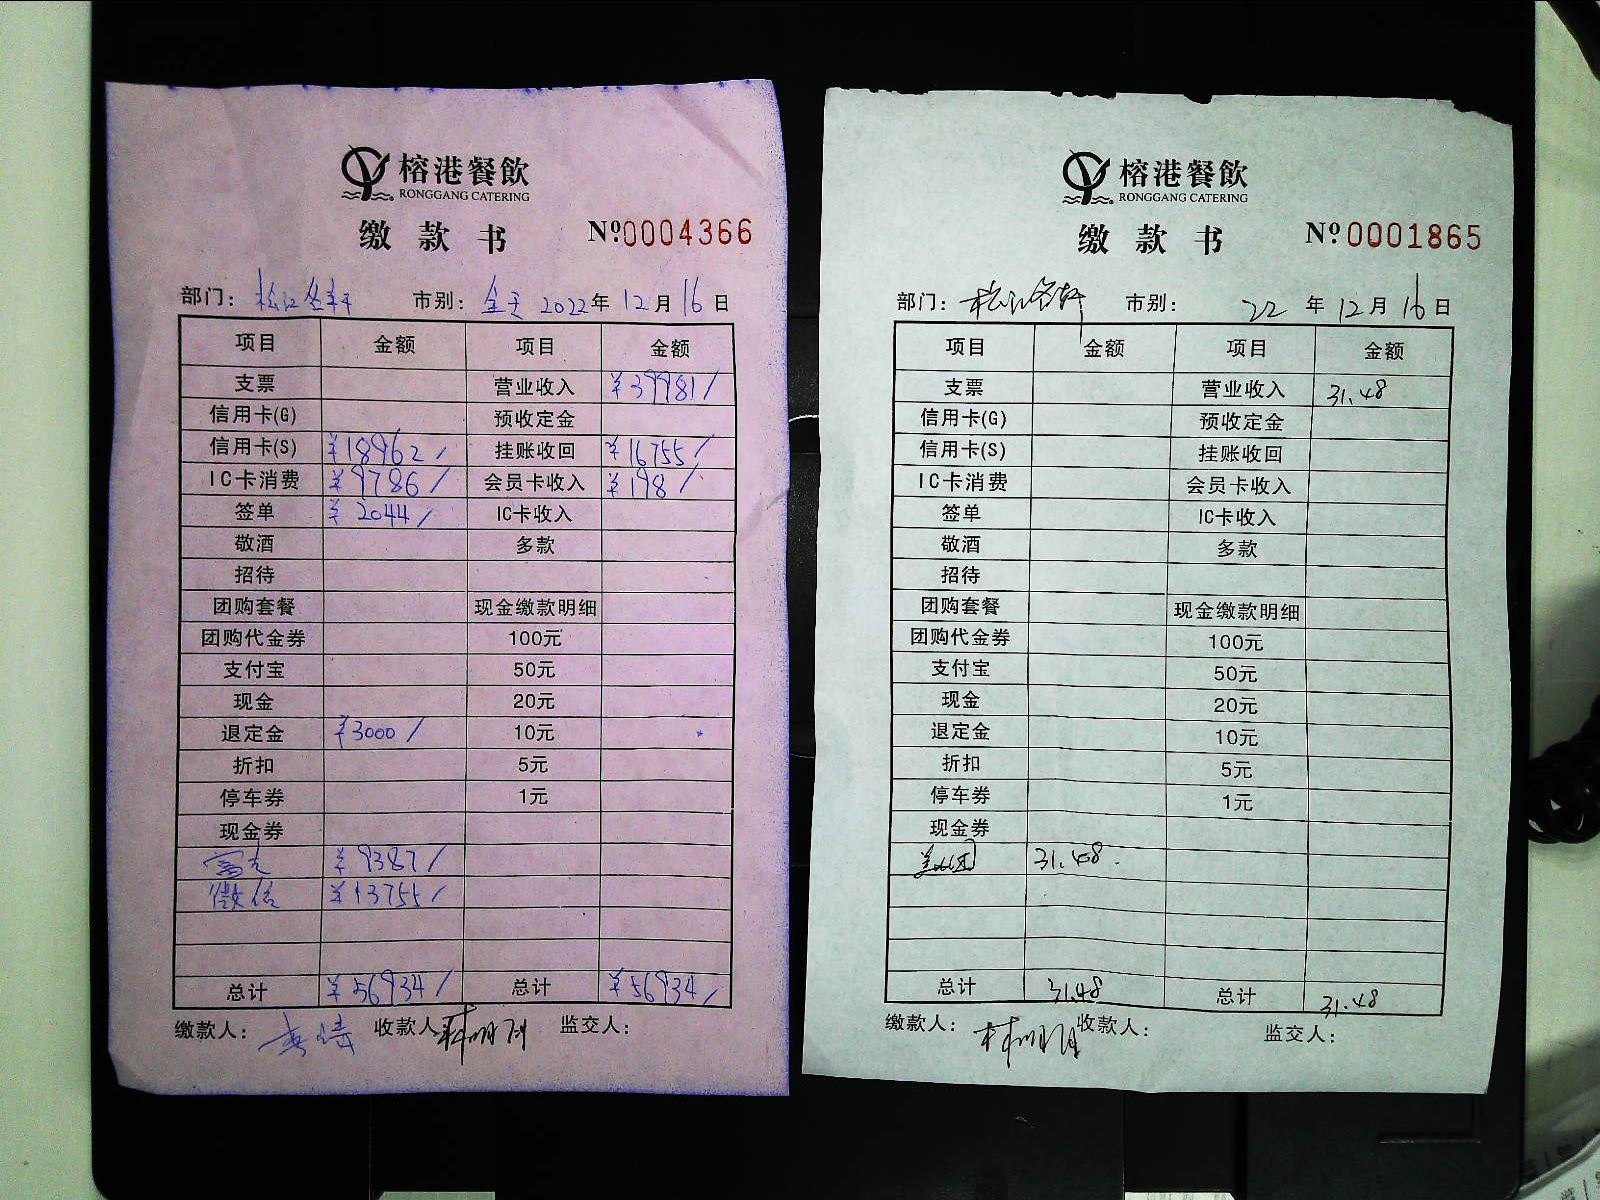 榕港餐飲
RONGGANG CATERING
缴款书 №0004366
部门： 市别：全天 2022年12月16日
项目 金额 项目 金额
支票 营业收入 ￥39981/
信用卡(G) 预收定金
信用卡(S) ￥18962/ 挂账收回 ￥16755/
IC卡消费 ￥9786/ 会员卡收入 ￥198/
签单 ￥2044/ IC卡收入
敬酒 多款
招待
团购套餐 现金缴款明细
团购代金券 100元
支付宝 50元
现金 20元
退定金 ￥3000/ 10元
折扣 5元
停车券 1元
现金券
￥9387/
微信 ￥13755/
总计 ￥56934/ 总计 ￥56934/
缴款人： 收款人 林明月 监交人：
榕港餐飲
RONGGANG CATERING
缴款书 №0001865
部门： 市别： 22年12月16日
项目 金额 项目 金额
支票 营业收入 31.48
信用卡(G) 预收定金
信用卡(S) 挂账收回
IC卡消费 会员卡收入
签单 IC卡收入
敬酒 多款
招待
团购套餐 现金缴款明细
团购代金券 100元
支付宝 50元
现金 20元
退定金 10元
折扣 5元
停车券 1元
现金券
美团 31.48
总计 31.48 总计 31.48
缴款人：林明月 收款人： 监交人：